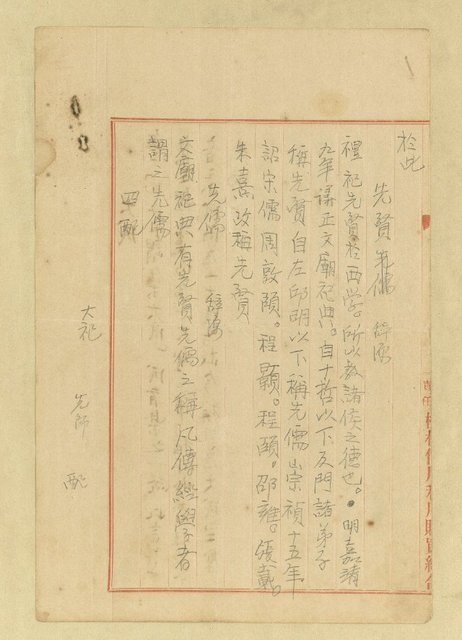 於此
先賢先儒 辭源
禮祀先賢於西學。所以教諸侯之德也。明嘉靖
九年釐正文廟祀典。自十哲以下及門諸弟子
稱先賢自左邱明以下稱先儒崇禎十五年
詔宋儒周敦頤。程顥。程頤。邵雍。張載。
朱熹改稱先賢
先儒 辭源
文廟祀典有先賢先儒之稱凡傳經學者
謂之先儒
四配
大祀 先師 配